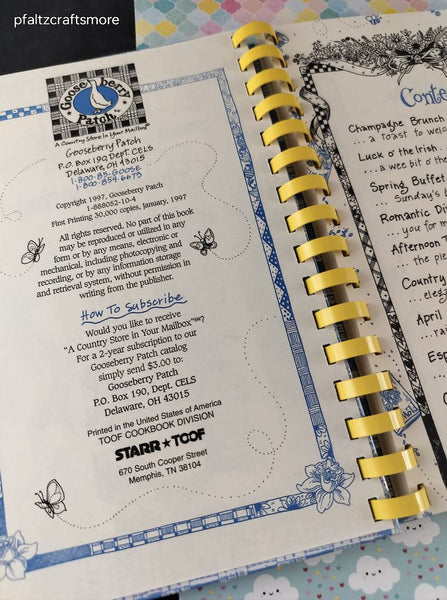 pfaltzcraftsmore
Gooseberry
Patch
A Country Store In Your Mailbox
Gooseberry Patch
P.O. Box 190, Dept. CELS
Delaware, OH 43015
1-800-85-GOOSE
1-800-854-6673
Copyright 1997, Gooseberry Patch
1-888052-10-4
First Printing 30,000 copies, January, 1997
All rights reserved. No part of this book
may be reproduced or utilized in any
form or by any means, electronic or
mechanical, including photocopying and
recording, or by any information storage
and retrieval system, without permission in
writing from the publisher.
How To Subscribe
Would you like to receive
"A Country Store in Your Mailbox"℠?
For a 2-year subscription to our
Gooseberry Patch catalog
simply send $3.00 to:
Gooseberry Patch
P.O. Box 190, Dept. CELS
Delaware, OH 43015
Printed in the United States of America
TOOF COOKBOOK DIVISION
STARR★TOOF
670 South Cooper Street
Memphis, TN 38104
Conte
Champagne Brunch
...a toast to wee
Luck o' the Irish
...a wee bit o' th
Spring Buffet
Sunday's
Romantic Di
...you for m
Afternoon
...the ple
Country
...eleg
April
...rai
Esp